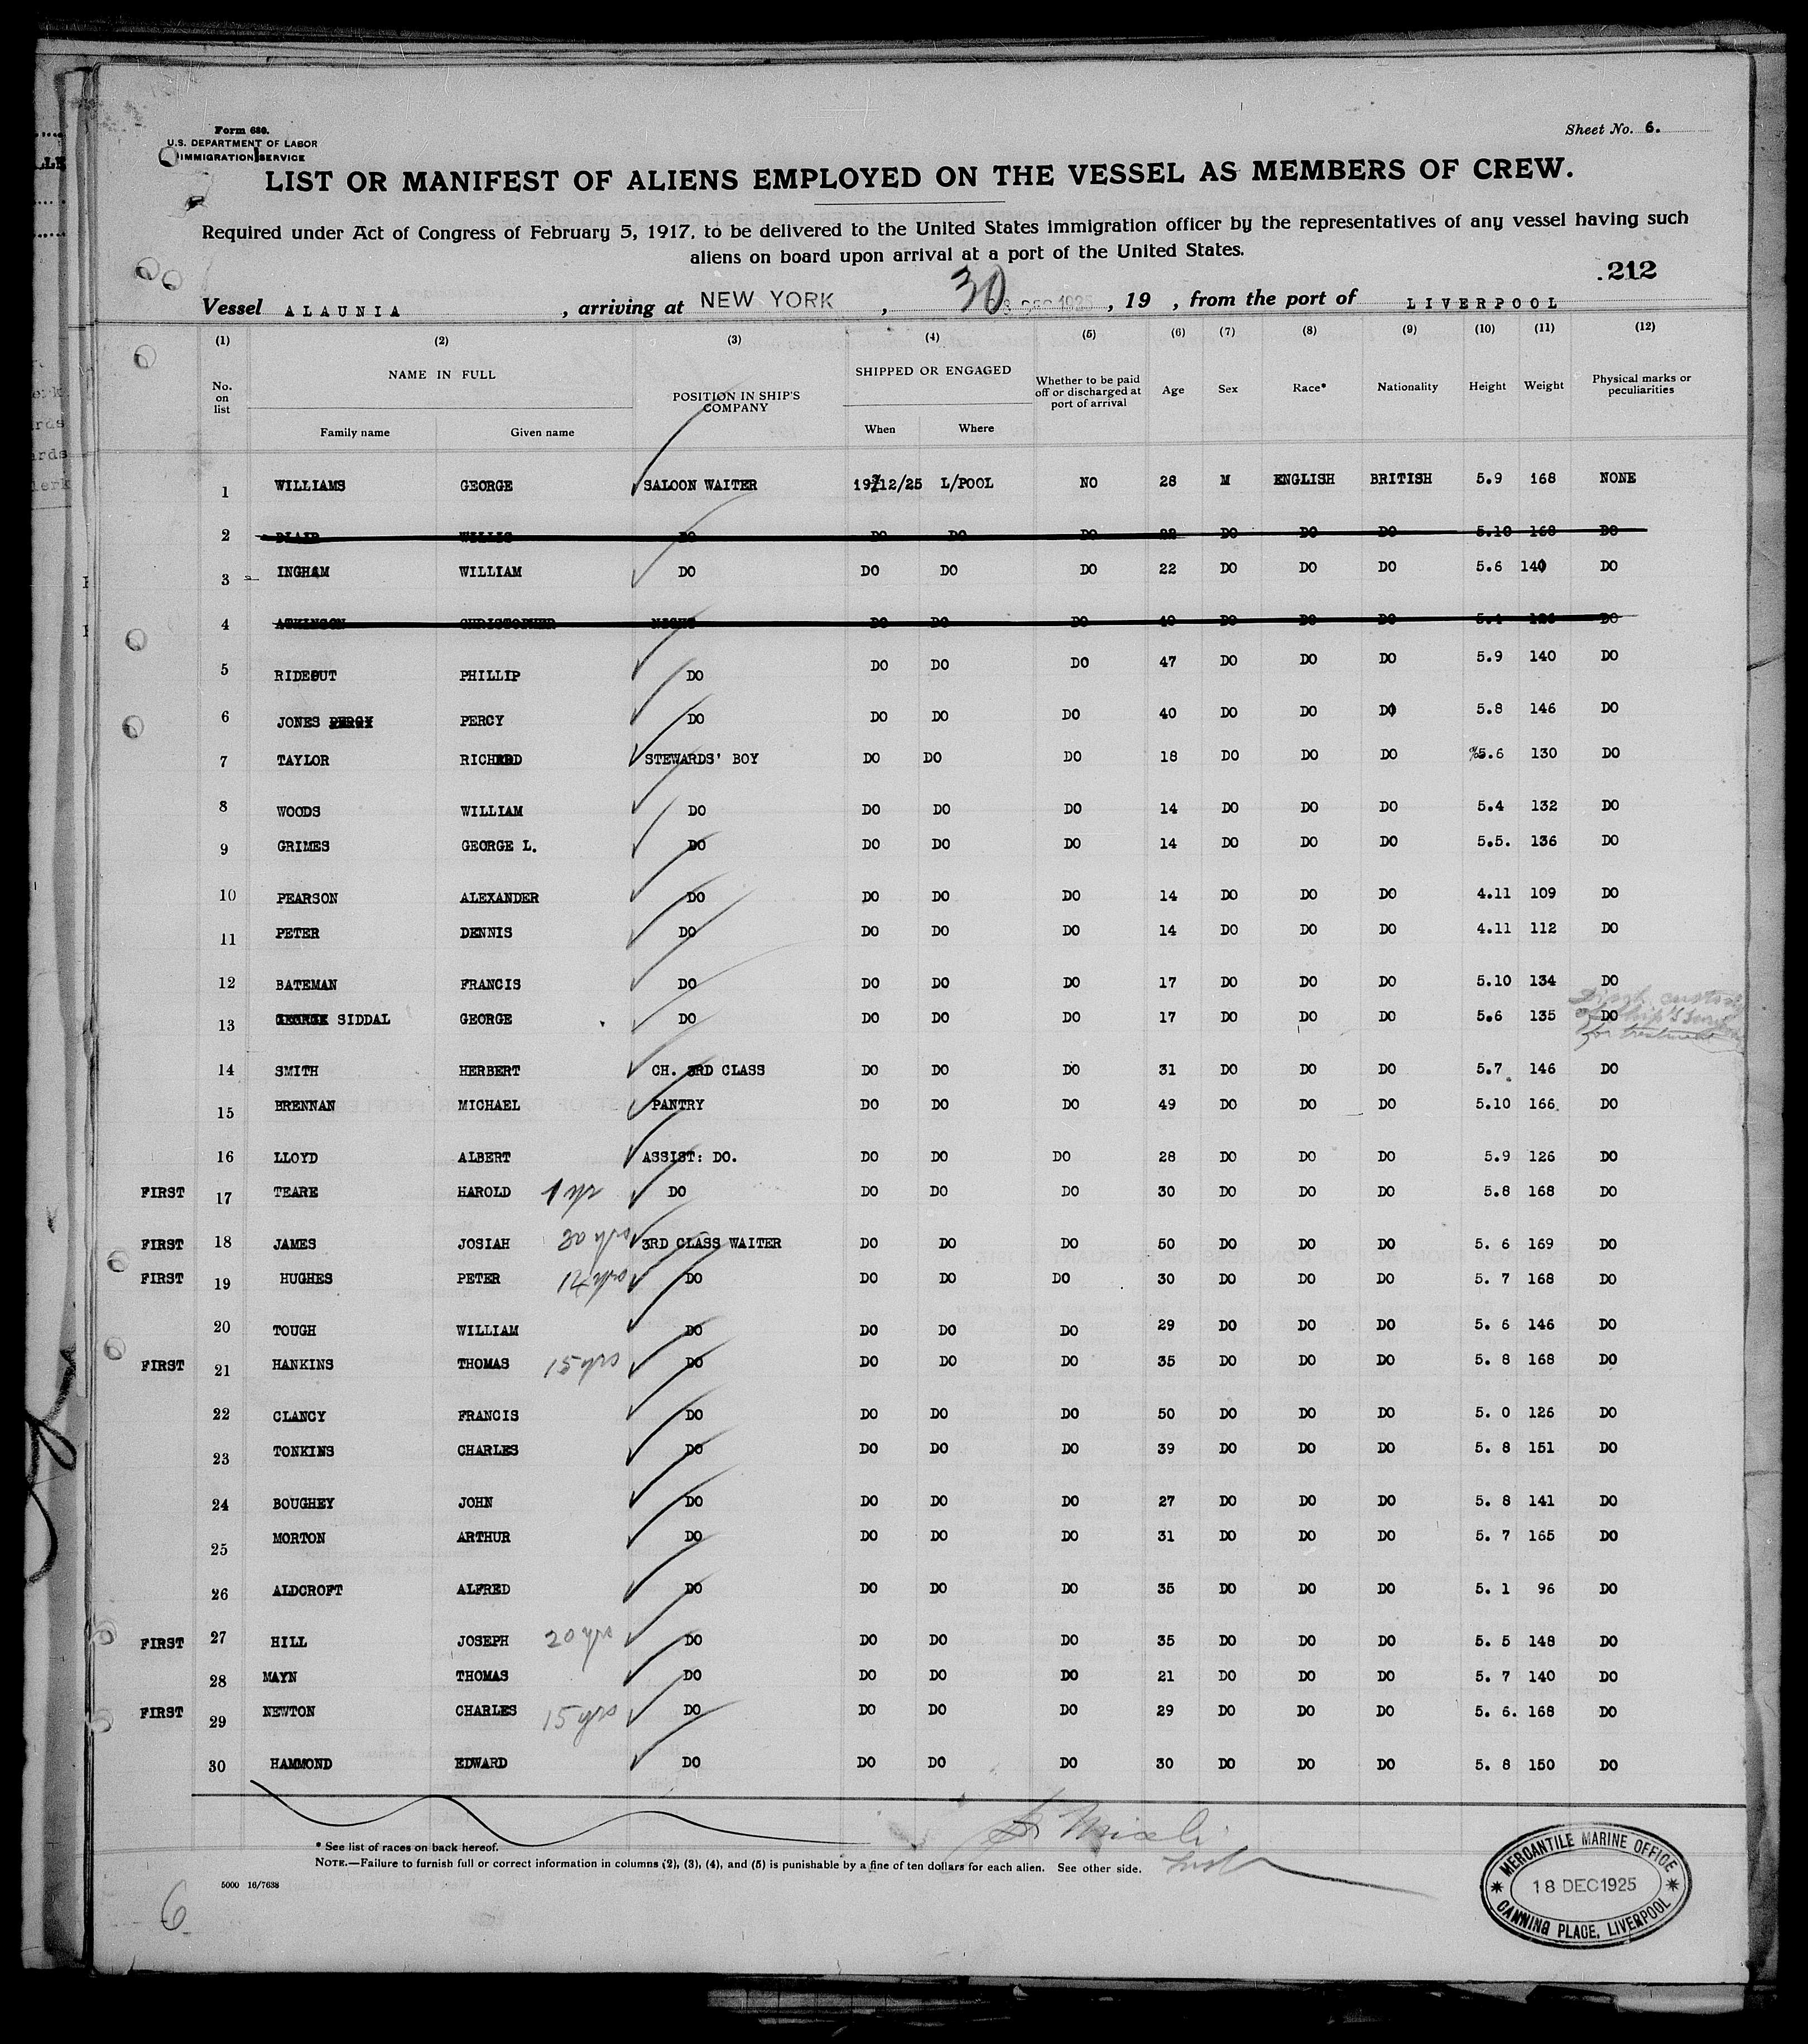 Form 680.
U.S. DEPARTMENT OF LABOR
IMMIGRATION SERVICE
Sheet No. 6.
LIST OR MANIFEST OF ALIENS EMPLOYED ON THE VESSEL AS MEMBERS OF CREW.
Required under Act of Congress of February 5, 1917, to be delivered to the United States immigration officer by the representatives of any vessel having such
aliens on board upon arrival at a port of the United States.
.212
Vessel ALAUNIA, arriving at NEW YORK, 30 DEC 1925, 19 , from the port of LIVERPOOL
(1) (2) (3) (4) (5) (6) (7) (8) (9) (10) (11) (12)
No. on list NAME IN FULL Family name Given name POSITION IN SHIP'S COMPANY SHIPPED OR ENGAGED When Where Whether to be paid off or discharged at port of arrival Age Sex Race* Nationality Height Weight Physical marks or peculiarities
1 WILLIAMS GEORGE SALOON WAITER 19/12/25 L/POOL NO 28 M ENGLISH BRITISH 5.9 168 NONE
2 BLAIR WILLIS DO DO DO DO DO DO DO 5.10 168 DO
3 INGHAM WILLIAM DO DO DO DO 22 DO DO DO 5.6 140 DO
4 ATKINSON CHRISTOPHER NIGHT DO DO DO 40 DO DO DO 5.4 126 DO
5 RIDEOUT PHILLIP DO DO DO DO 47 DO DO DO 5.9 140 DO
6 JONES PERCY PERCY DO DO DO DO 40 DO DO DO 5.8 146 DO
7 TAYLOR RICHARD STEWARDS' BOY DO DO DO 18 DO DO DO 5.6 130 DO
8 WOODS WILLIAM DO DO DO DO 14 DO DO DO 5.4 132 DO
9 GRIMES GEORGE L. DO DO DO DO 14 DO DO DO 5.5. 136 DO
10 PEARSON ALEXANDER DO DO DO DO 14 DO DO DO 4.11 109 DO
11 PETER DENNIS DO DO DO DO 14 DO DO DO 4.11 112 DO
12 BATEMAN FRANCIS DO DO DO DO 17 DO DO DO 5.10 134 DO
13 GEORGE SIDDAL GEORGE DO DO DO DO 17 DO DO DO 5.6 135 DO
Disch custody
of Ship's Surgeon
for treatment
14 SMITH HERBERT CH. 3RD CLASS DO DO DO 31 DO DO DO 5.7 146 DO
15 BRENNAN MICHAEL PANTRY DO DO DO 49 DO DO DO 5.10 166 DO
16 LLOYD ALBERT ASSIST: DO. DO DO DO 28 DO DO DO 5.9 126 DO
FIRST 17 TEARE HAROLD 1 yr DO DO DO DO 30 DO DO DO 5.8 168 DO
FIRST 18 JAMES JOSIAH 3RD CLASS WAITER DO DO DO 50 DO DO DO 5. 6 169 DO
FIRST 19 HUGHES PETER DO DO DO DO 30 DO DO DO 5. 7 168 DO
20 TOUGH WILLIAM DO DO DO DO 29 DO DO DO 5. 6 146 DO
FIRST 21 HANKINS THOMAS 15 yrs DO DO DO DO 35 DO DO DO 5. 8 168 DO
22 CLANCY FRANCIS DO DO DO DO 50 DO DO DO 5. 0 126 DO
23 TONKINS CHARLES DO DO DO DO 39 DO DO DO 5. 8 151 DO
24 BOUGHEY JOHN DO DO DO DO 27 DO DO DO 5. 8 141 DO
25 MORTON ARTHUR DO DO DO DO 31 DO DO DO 5. 7 165 DO
26 ALDCROFT ALFRED DO DO DO DO 35 DO DO DO 5. 1 96 DO
FIRST 27 HILL JOSEPH 20 yrs DO DO DO DO 35 DO DO DO 5. 5 148 DO
28 MAYN THOMAS DO DO DO DO 21 DO DO DO 5. 7 140 DO
FIRST 29 NEWTON CHARLES 15 yrs DO DO DO DO 29 DO DO DO 5. 6. 168 DO
30 HAMMOND EDWARD DO DO DO DO 30 DO DO DO 5. 8 150 DO
* See list of races on back hereof.
NOTE.—Failure to furnish full or correct information in columns (2), (3), (4), and (5) is punishable by a fine of ten dollars for each alien. See other side.
5000 16/7638
6
MERCANTILE MARINE OFFICE
18 DEC 1925
CANNING PLACE, LIVERPOOL